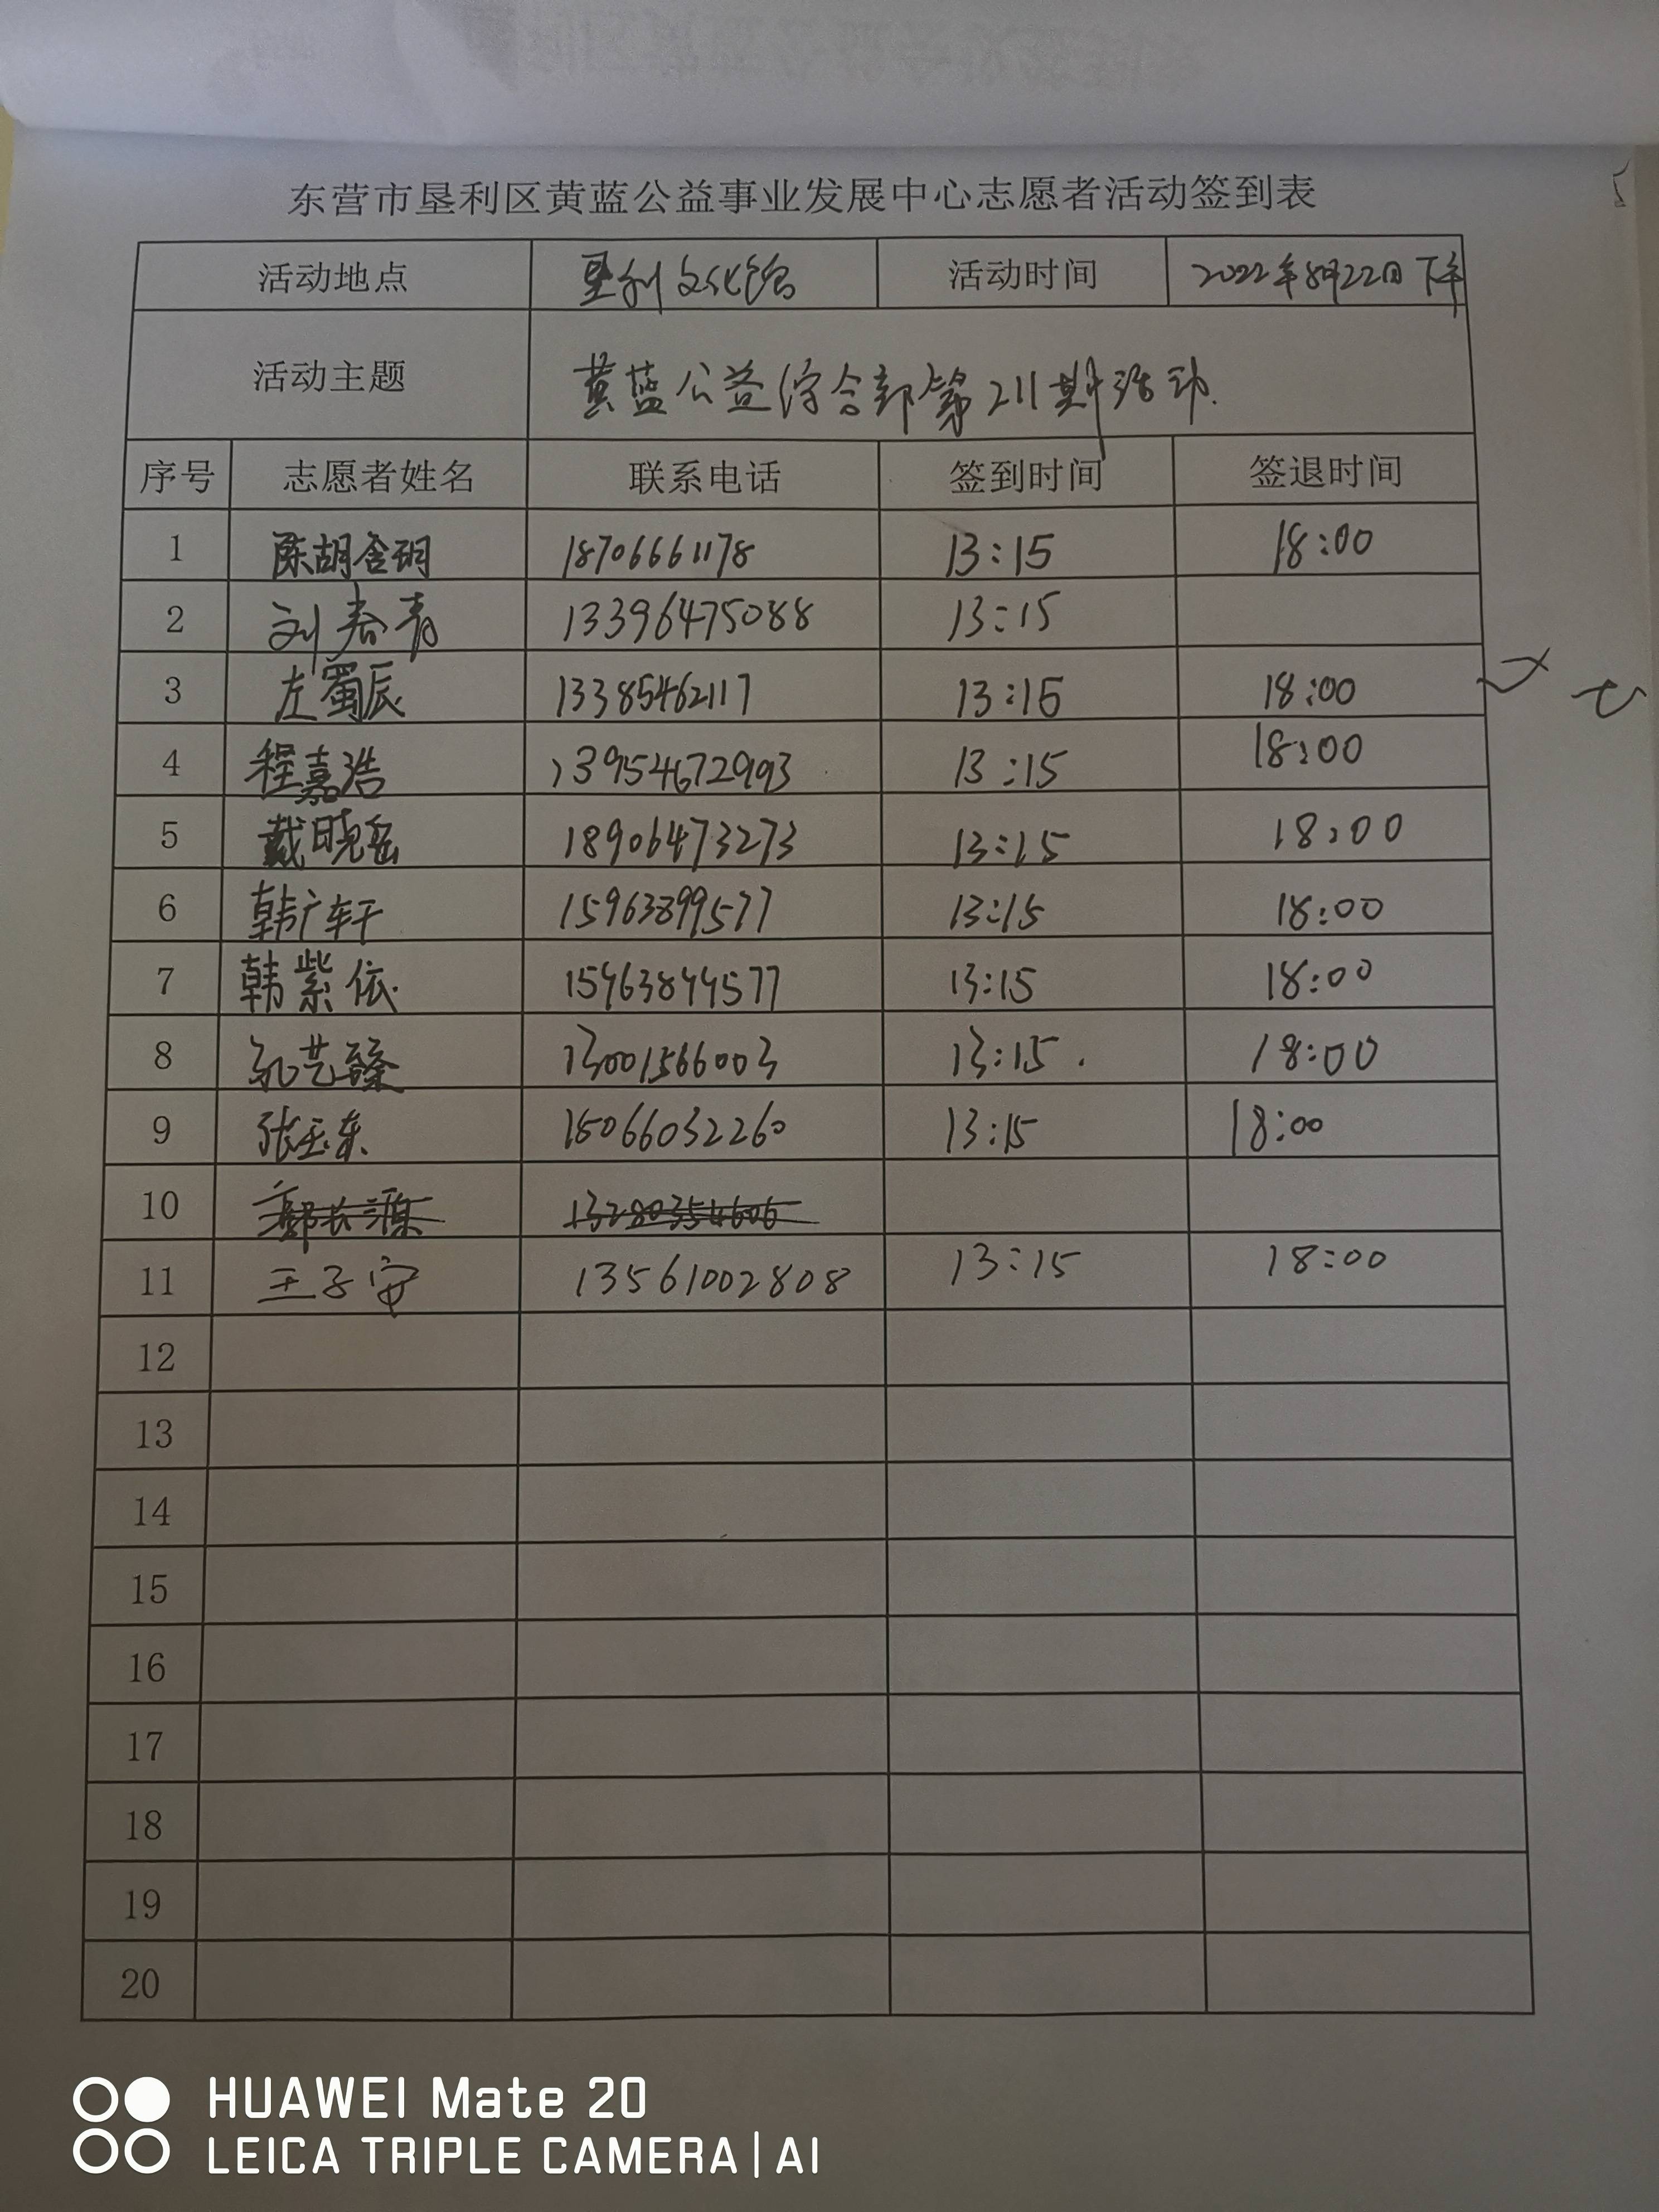 东营市垦利区黄蓝公益事业发展中心志愿者活动签到表
活动地点 垦利文化馆 活动时间 2022年8月22日下午
活动主题 黄蓝公益综合部第211期活动.
序号 志愿者姓名 联系电话 签到时间 签退时间
1 陈胡含玥 18706661178 13:15 18:00
2 刘春青 13396475088 13:15
3 左蜀辰 13385462117 13:15 18:00
4 程嘉浩 13954672993 13:15 18:00
5 戴晓岳 18906473273 13:15 18:00
6 韩广轩 15963899577 13:15 18:00
7 韩紫依 15963899577 13:15 18:00
8 孔艺臻 13001566003 13:15 18:00
9 张玉东 15066032260 13:15 18:00
10 13280354606
11 王子安 13561002808 13:15 18:00
12
13
14
15
16
17
18
19
20
HUAWEI Mate 20
LEICA TRIPLE CAMERA | AI